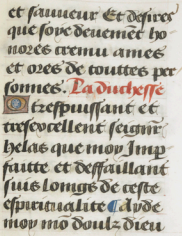 et sauueur Et desires
que soye deuement ho
nores cremu ames
et ores de touttes per
sonnes. La duchesse
O trespuissant et
tresexcellent seignr
helas que moy Imp
faitte et deffaillant
suis longs de ceste
espiritualite Ayde
moy mō doulz dieu